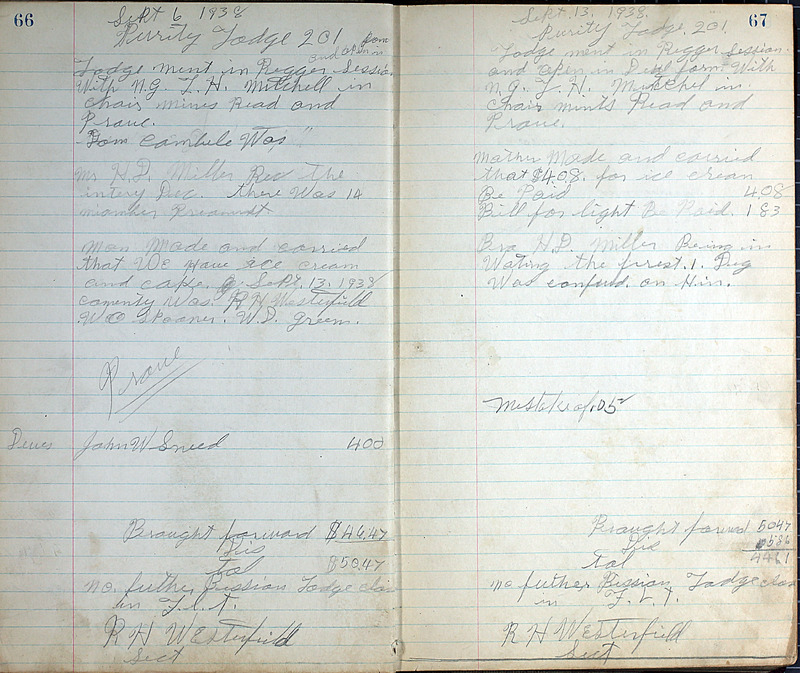 66
Sept 6, 1938
Purity Lodge 201
and open in
form
Lodge ment in Regger Session
With N.G. L. H. Mitchell in
chair mines Read and
Prove.
Tom Cambele Was "
Mr H.D. Miller Rec the
intery Deg. there Was 14
member
Mon Made and carried
that We Have ice cream
and cake. Sept. 13. 1938
comenty Was R H Westerfield
W.O Spooner. W.D. Green.
Prove
Deues John W Sneed 400
Brought forward $46.47
Tal $50.47
no. futher Bission Lodge clos
in F.L.T.
R H Westerfield
Sect
67
Sept. 13. 1938.
Purity Lodge. 201.
Lodge ment in Regger Session.
and open in Deu form. With
N.G. L. H. Mitchel in.
Chair mints Read and
Prove.
Mother Made and carried
that $4.08. for ice cream
Be Paid 4.08
Bill for light Be Paid. 183
Bro H.D. Miller Being in
Wating the first. 1. Deg
Was confurd. on Him.
Mistake of .05
Brought forward 5047
586
Tal 4461
no futher Bission, Lodge clos
in F. L. T.
R H Westerfield
Sect